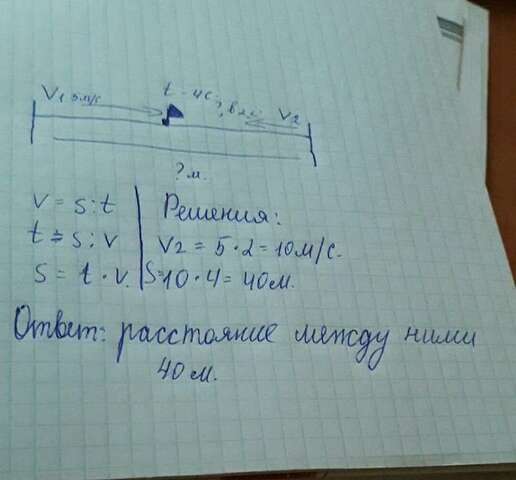 V1 5м/с t - 4с. ?, в 2 V2
? м.
V = S : t
t = S : V
S = t · V.
Решения:
V2 = 5 · 2 = 10 м/с.
S = 10 · 4 = 40 м.
Ответ: расстояние между ними
40 м.